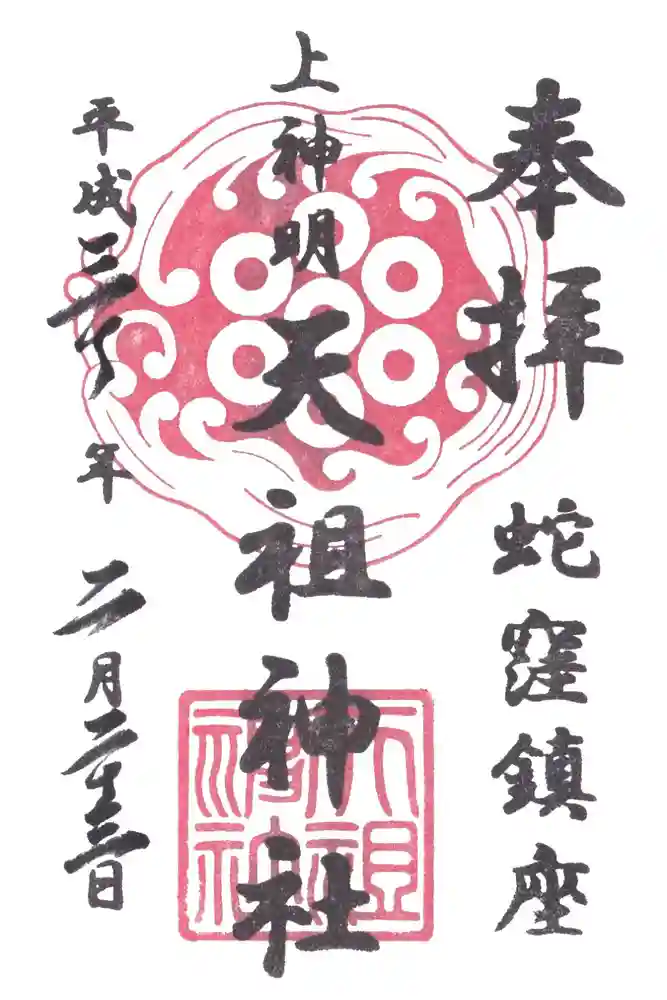 奉拝
蛇窪鎮座
上神明天祖神社
平成三十年二月二十三日
天祖
神社